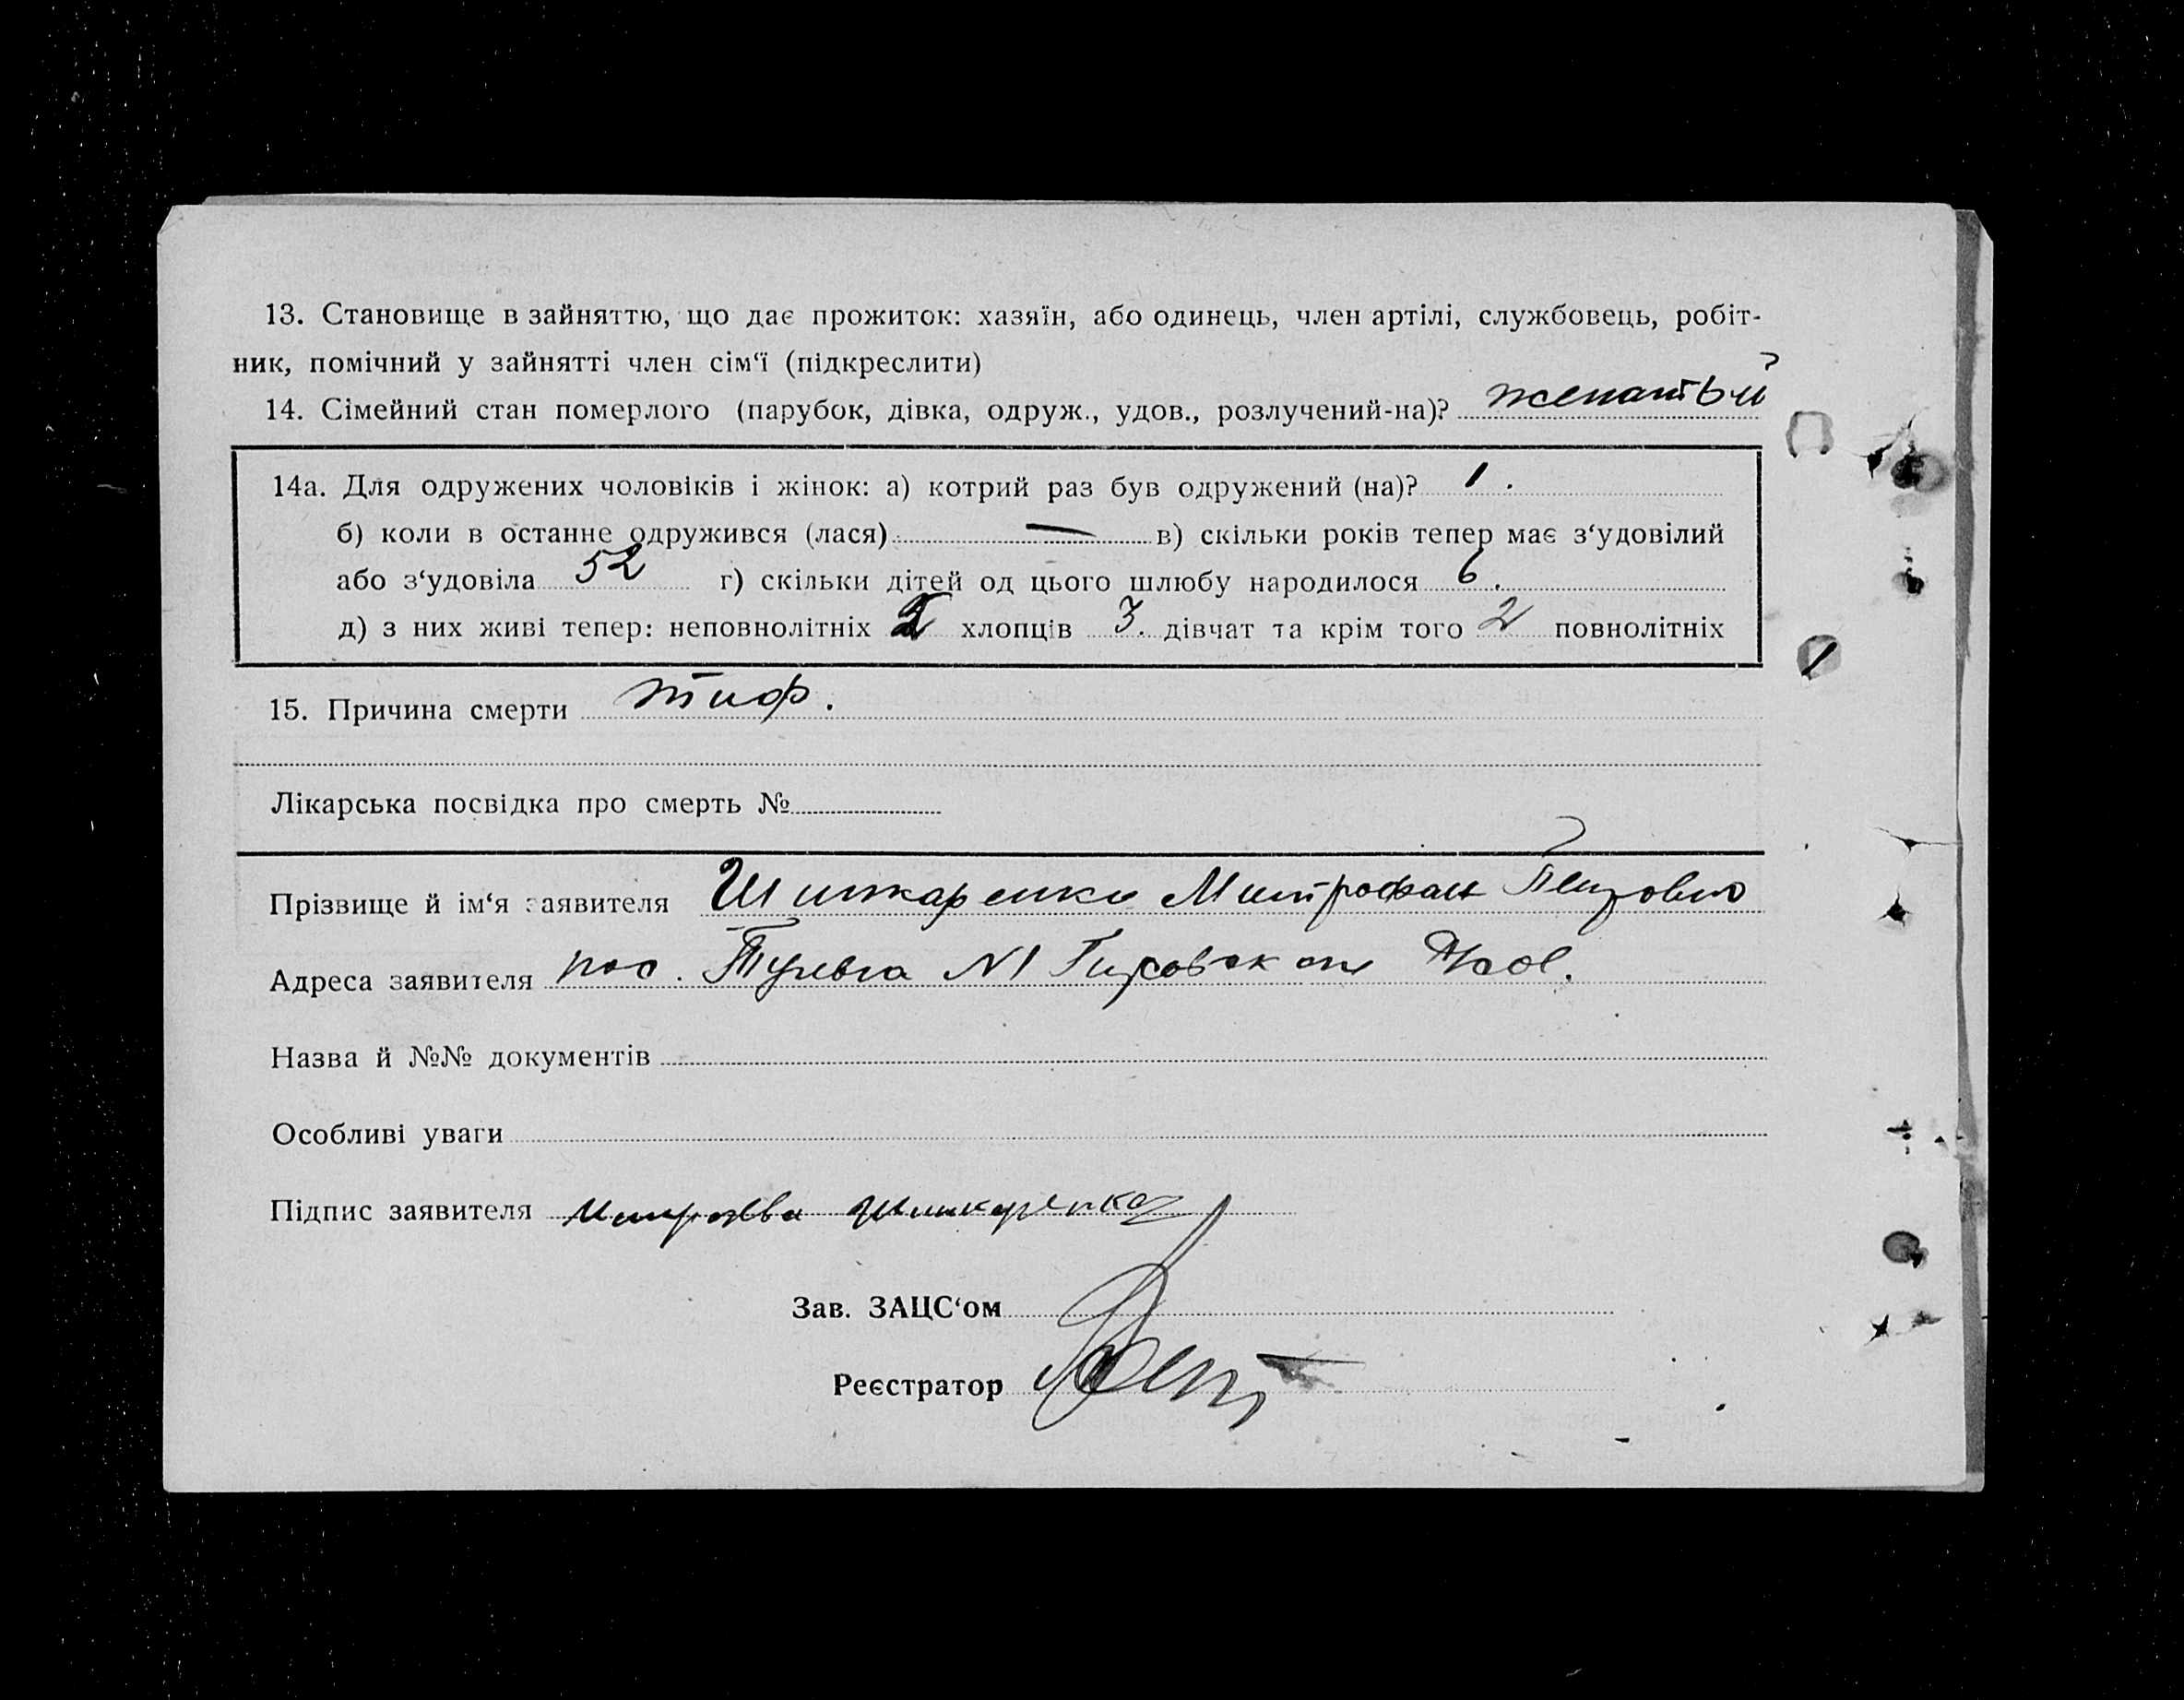 13. Становище в зайняттю, що дає прожиток: хазяїн, або одинець, член артілі, службовець, робіт-
ник, помічний у зайнятті член сім‘ї (підкреслити)
14. Сімейний стан померлого (парубок, дівка, одруж., удов., розлучений-на)? женатый
14а. Для одружених чоловіків і жінок: а) котрий раз був одружений (на)? 1.
б) коли в останне одружився (лася) — в) скільки років тепер має з‘удовілий
або з‘удовіла 52 г) скільки дітей од цього шлюбу народилося 6.
д) з них живі тепер: неповнолітніх хлопців 3. дівчат та крім того 2 повнолітніх
15. Причина смерти тиф.
Лікарська посвідка про смерть №
Прізвище й ім‘я заявителя Шинкаренко Митрофан
Адреса заявителя пос. N1
Назва й №№ документів
Особливі уваги
Підпис заявителя Шинкаренко
Зав. ЗАЦС‘ом
Реєстратор